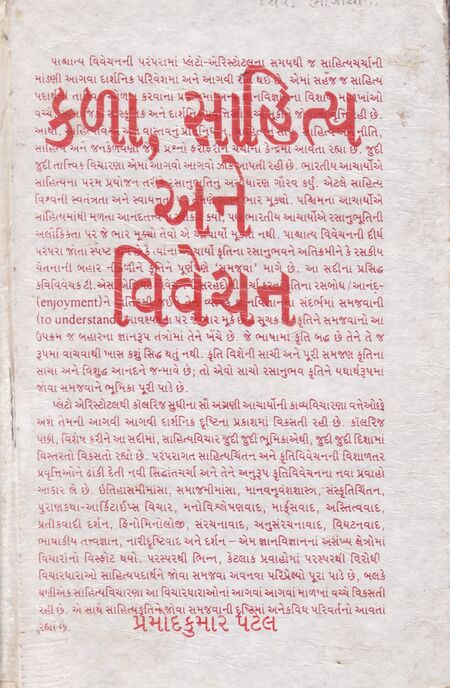 પાશ્ચાત્ય વિવેચનની પરંપરામાં પ્લેટો-ઍરિસ્ટોટલના સમયથી જ સાહિત્યચર્ચાની
માંડણી આગવા દાર્શનિક પરિવેશમાં અને આગવી થઈ છે. એમાં સહેજ જ સાહિત્ય
કળા, સાહિત્ય
અને
વિવેચન
જુદી તાત્ત્વિક વિચારણા એમાં આગવો આગવો ઝોક આપતી રહી છે. ભારતીય આચાર્યોએ
સાહિત્યના પરમ પ્રયોજન ગૌરવ કર્યું. એટલે સાહિત્ય
વિશ્વની સ્વતંત્રતા અને મૂક્યો. પશ્ચિમના આચાર્યોએ
સાહિત્યમાંથી મળતા આનંદતત્ત્વ ભારતીય આચાર્યોએ રસાનુભૂતિની
અલૌકિકતા પર જે ભાર મૂક્યો તેવો એ મૂક્યો નથી. પાશ્ચાત્ય વિવેચનની દીર્ઘ
પરંપરા જોતાં સ્પષ્ટ કૃતિના રસાનુભવને અતિક્રમીને કે રસકીય
ચેતનાની બહાર સમજવા' માગે છે. આ સદીના પ્રસિદ્ધ
કવિવિવેચક ટી. સાહિત્યના રસબોધ/આનંદ-
(enjoyment)ને સંદર્ભમાં સમજવાની
(to understand) કૃતિને સમજવાનો આ
ઉપક્રમ જ બહારના જ્ઞાનરૂપ તંત્રોમાં તેને ખેંચે છે. જે ભાષામાં કૃતિ બદ્ધ છે તેને તે જ
રૂપમાં વાંચવાથી ખાસ કશું સિદ્ધ થતું નથી. કૃતિ વિશેની સાચી અને પૂરી સમજણ કૃતિના
સાચા અને વિશુદ્ધ આનંદને જન્માવે છે; તો એવો સાચો રસાનુભવ કૃતિને યથાર્થરૂપમાં
જોવા સમજવાને ભૂમિકા પૂરી પાડે છે.
પ્લેટો ઍરિસ્ટોટલથી કૉલરિજ સુધીના સૌ અગ્રણી આચાર્યોની કાવ્યવિચારણા વત્તેઓછે
અંશે તેમની આગવી આગવી દાર્શનિક દૃષ્ટિના પ્રકાશમાં વિકસતી રહી છે. કૉલરિજ
પછી, વિશેષ કરીને આ સદીમાં, સાહિત્યવિચાર જુદી જુદી ભૂમિકાએથી, જુદી જુદી દિશામાં
વિસ્તરતો વિકસતો રહ્યો છે. પરંપરાગત સાહિત્યચિંતન અને કૃતિવિવેચનની વિશાળતર
પ્રવૃત્તિઓને ઢાંકી દેતી નવી સિદ્ધાંતચર્ચા અને તેને અનુરૂપ કૃતિવિવેચનના નવા પ્રવાહો
આકાર લે છે. ઇતિહાસમીમાંસા, સમાજમીમાંસા, માનવનૃવંશશાસ્ત્ર, સંસ્કૃતિચિંતન,
પુરાણકથા-આર્કિટાઈપ્સ વિચાર, મનોવિશ્લેષણવાદ, માર્ક્સવાદ, અસ્તિત્વવાદ
પ્રતીકવાદી દર્શન, ફિનોમિનોલોજી, સંરચનાવાદ, અનુસંરચનાવાદ, વિઘટનવાદ,
ભાષાકીય તત્ત્વજ્ઞાન, નારીદૃષ્ટિવાદ અને દર્શન – એમ જ્ઞાનવિજ્ઞાનનાં અસંખ્ય ક્ષેત્રોમાં
વિચારોનો વિસ્ફોટ થયો. પરસ્પરથી ભિન્ન, કેટલાક પ્રવાહોમાં પરસ્પરથી વિરોધી
વિચારધારાઓ સાહિત્યપદાર્થને જોવા સમજવા અવનવા પરિપ્રેક્ષ્યો પૂરા પાડે છે, બલકે
ઘણીએક સાહિત્યવિચારણા આ વિચારધારાઓનાં આગવાં આગવાં માળખાં વચ્ચે વિકસતી
રહી છે. એ સાથે સાહિત્યકૃતિને જોવા સમજવાની દૃષ્ટિમાં અનેકવિધ પરિવર્તનો આવતાં
રહ્યાં છે.
પ્રમોદકુમાર પટેલ